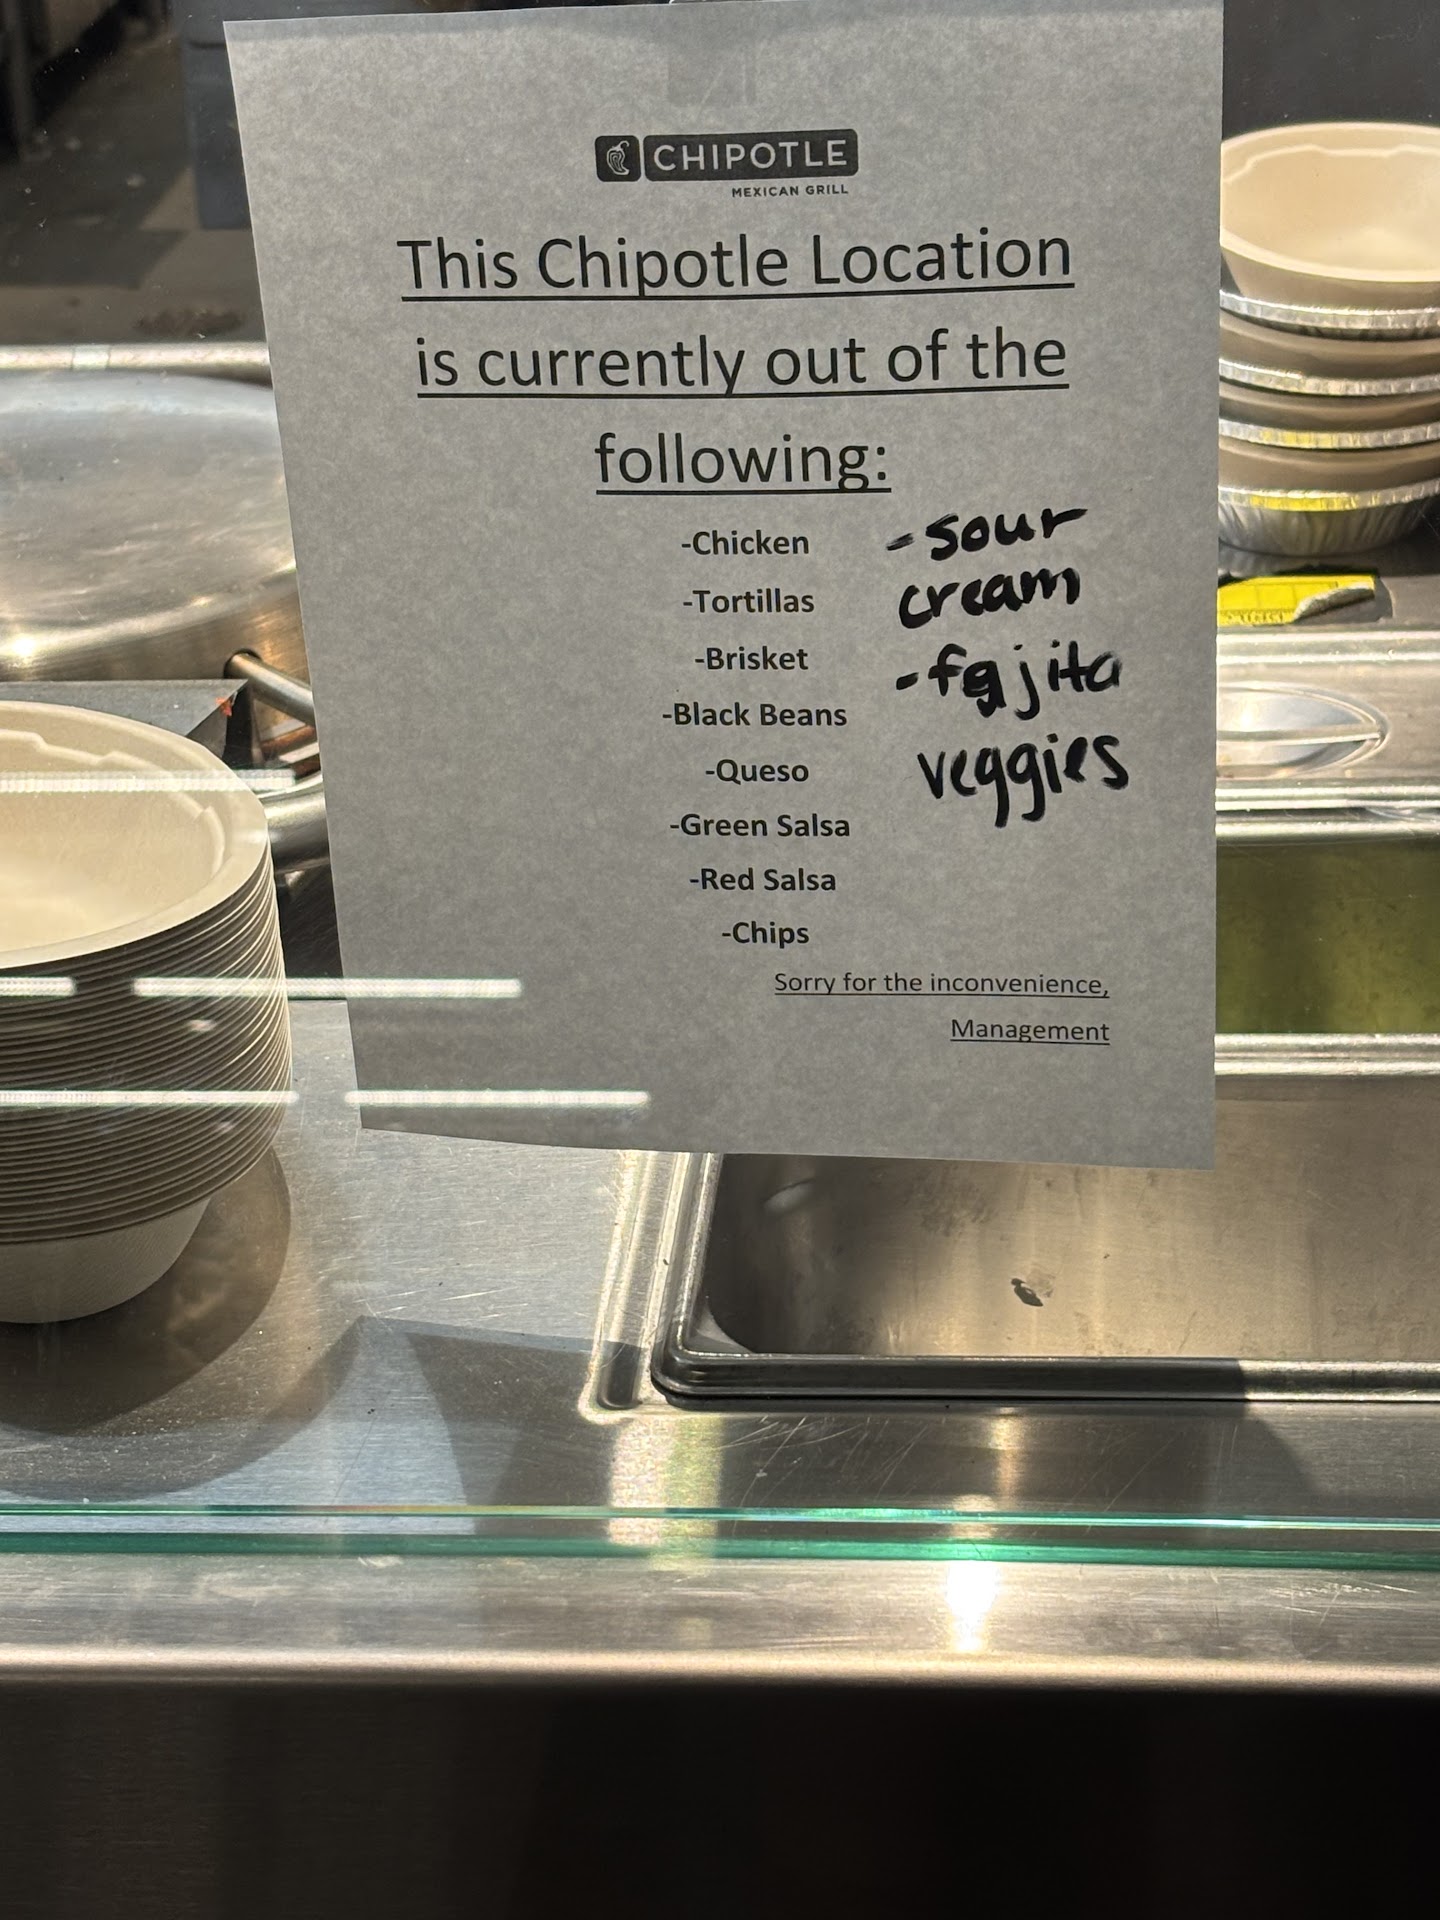 CHIPOTLE
MEXICAN GRILL
This Chipotle Location
is currently out of the
following:
-Chicken
-Tortillas
-Brisket
-Black Beans
-Queso
-Green Salsa
-Red Salsa
-Chips
-sour
cream
-fajita
veggies
Sorry for the inconvenience,
Management